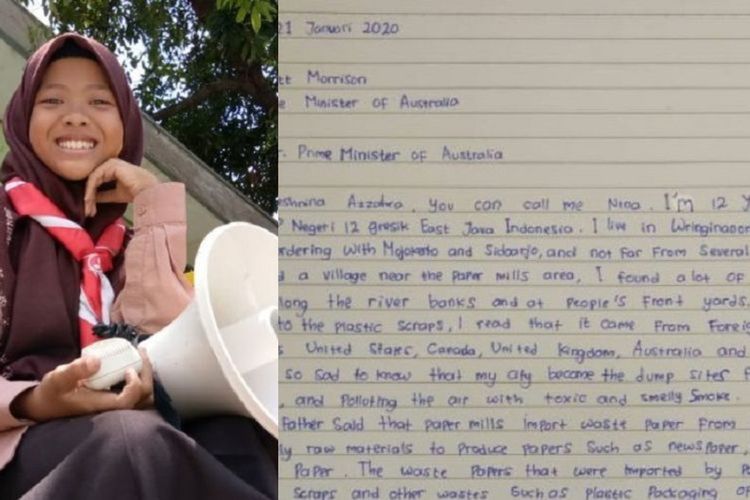 21 Januari 2020
Morrison
Minister of Australia
Prime Minister of Australia
Azzahra, You can call me Nina. I'm 12 y
Negeri 12 gresik East Java Indonesia. I live in Wringinanom
rdering with Mojokerto and Sidoarjo, and not far from Several
a village near the paper mills area, I found a lot of
long the river banks and at people's front yards.
to the plastic scraps, I read that it came from Foreig
United States, Canada, United Kingdom, Australia and
so sad to know that my city become the dump sites f
, and polloting the air with toxic and smelly smoke.
Father said that paper mills import waste paper from
ly raw materials to produce papers such as newspaper,
paper. The waste papers that were imported by p
scraps and other wastes such as plastic packaging of